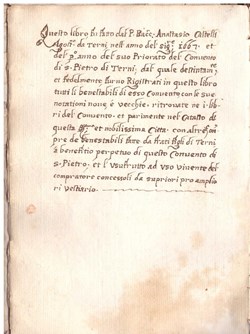 Questo libro fu fatto dal P. Bacc. Anastasio Castelli
Agost. da Terni nell anno del Sig.re 1667. et
del p.o anno del suo Priorato del Convento
di S. Pietro di Terni, dal quale
et fedelmente furno Rigistrati in questo libro
tutti li benestabili di esso Convento con le sue
notationi nove è vecchie, ritrovate ne i li-
bri del Convento, et parimente nel Catasto di
questa et nobilissima Città, con altre
pre de benestabili fatte da frati
à benefitio perpetuo di questo Convento di
S. Pietro, et l'usufrutto ad uso vivente del
compratore concessoli da superiori pro
ri